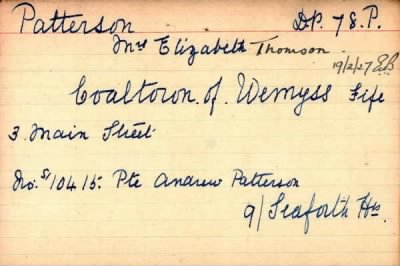 Patterson D.P. 78.P.
Mrs Elizabeth Thomson
19/2/27
Coaltown of Wemyss Fife
3 Main Street
No. S/10415. Pte Andrew Patterson
9/ Seaforth Hrs.